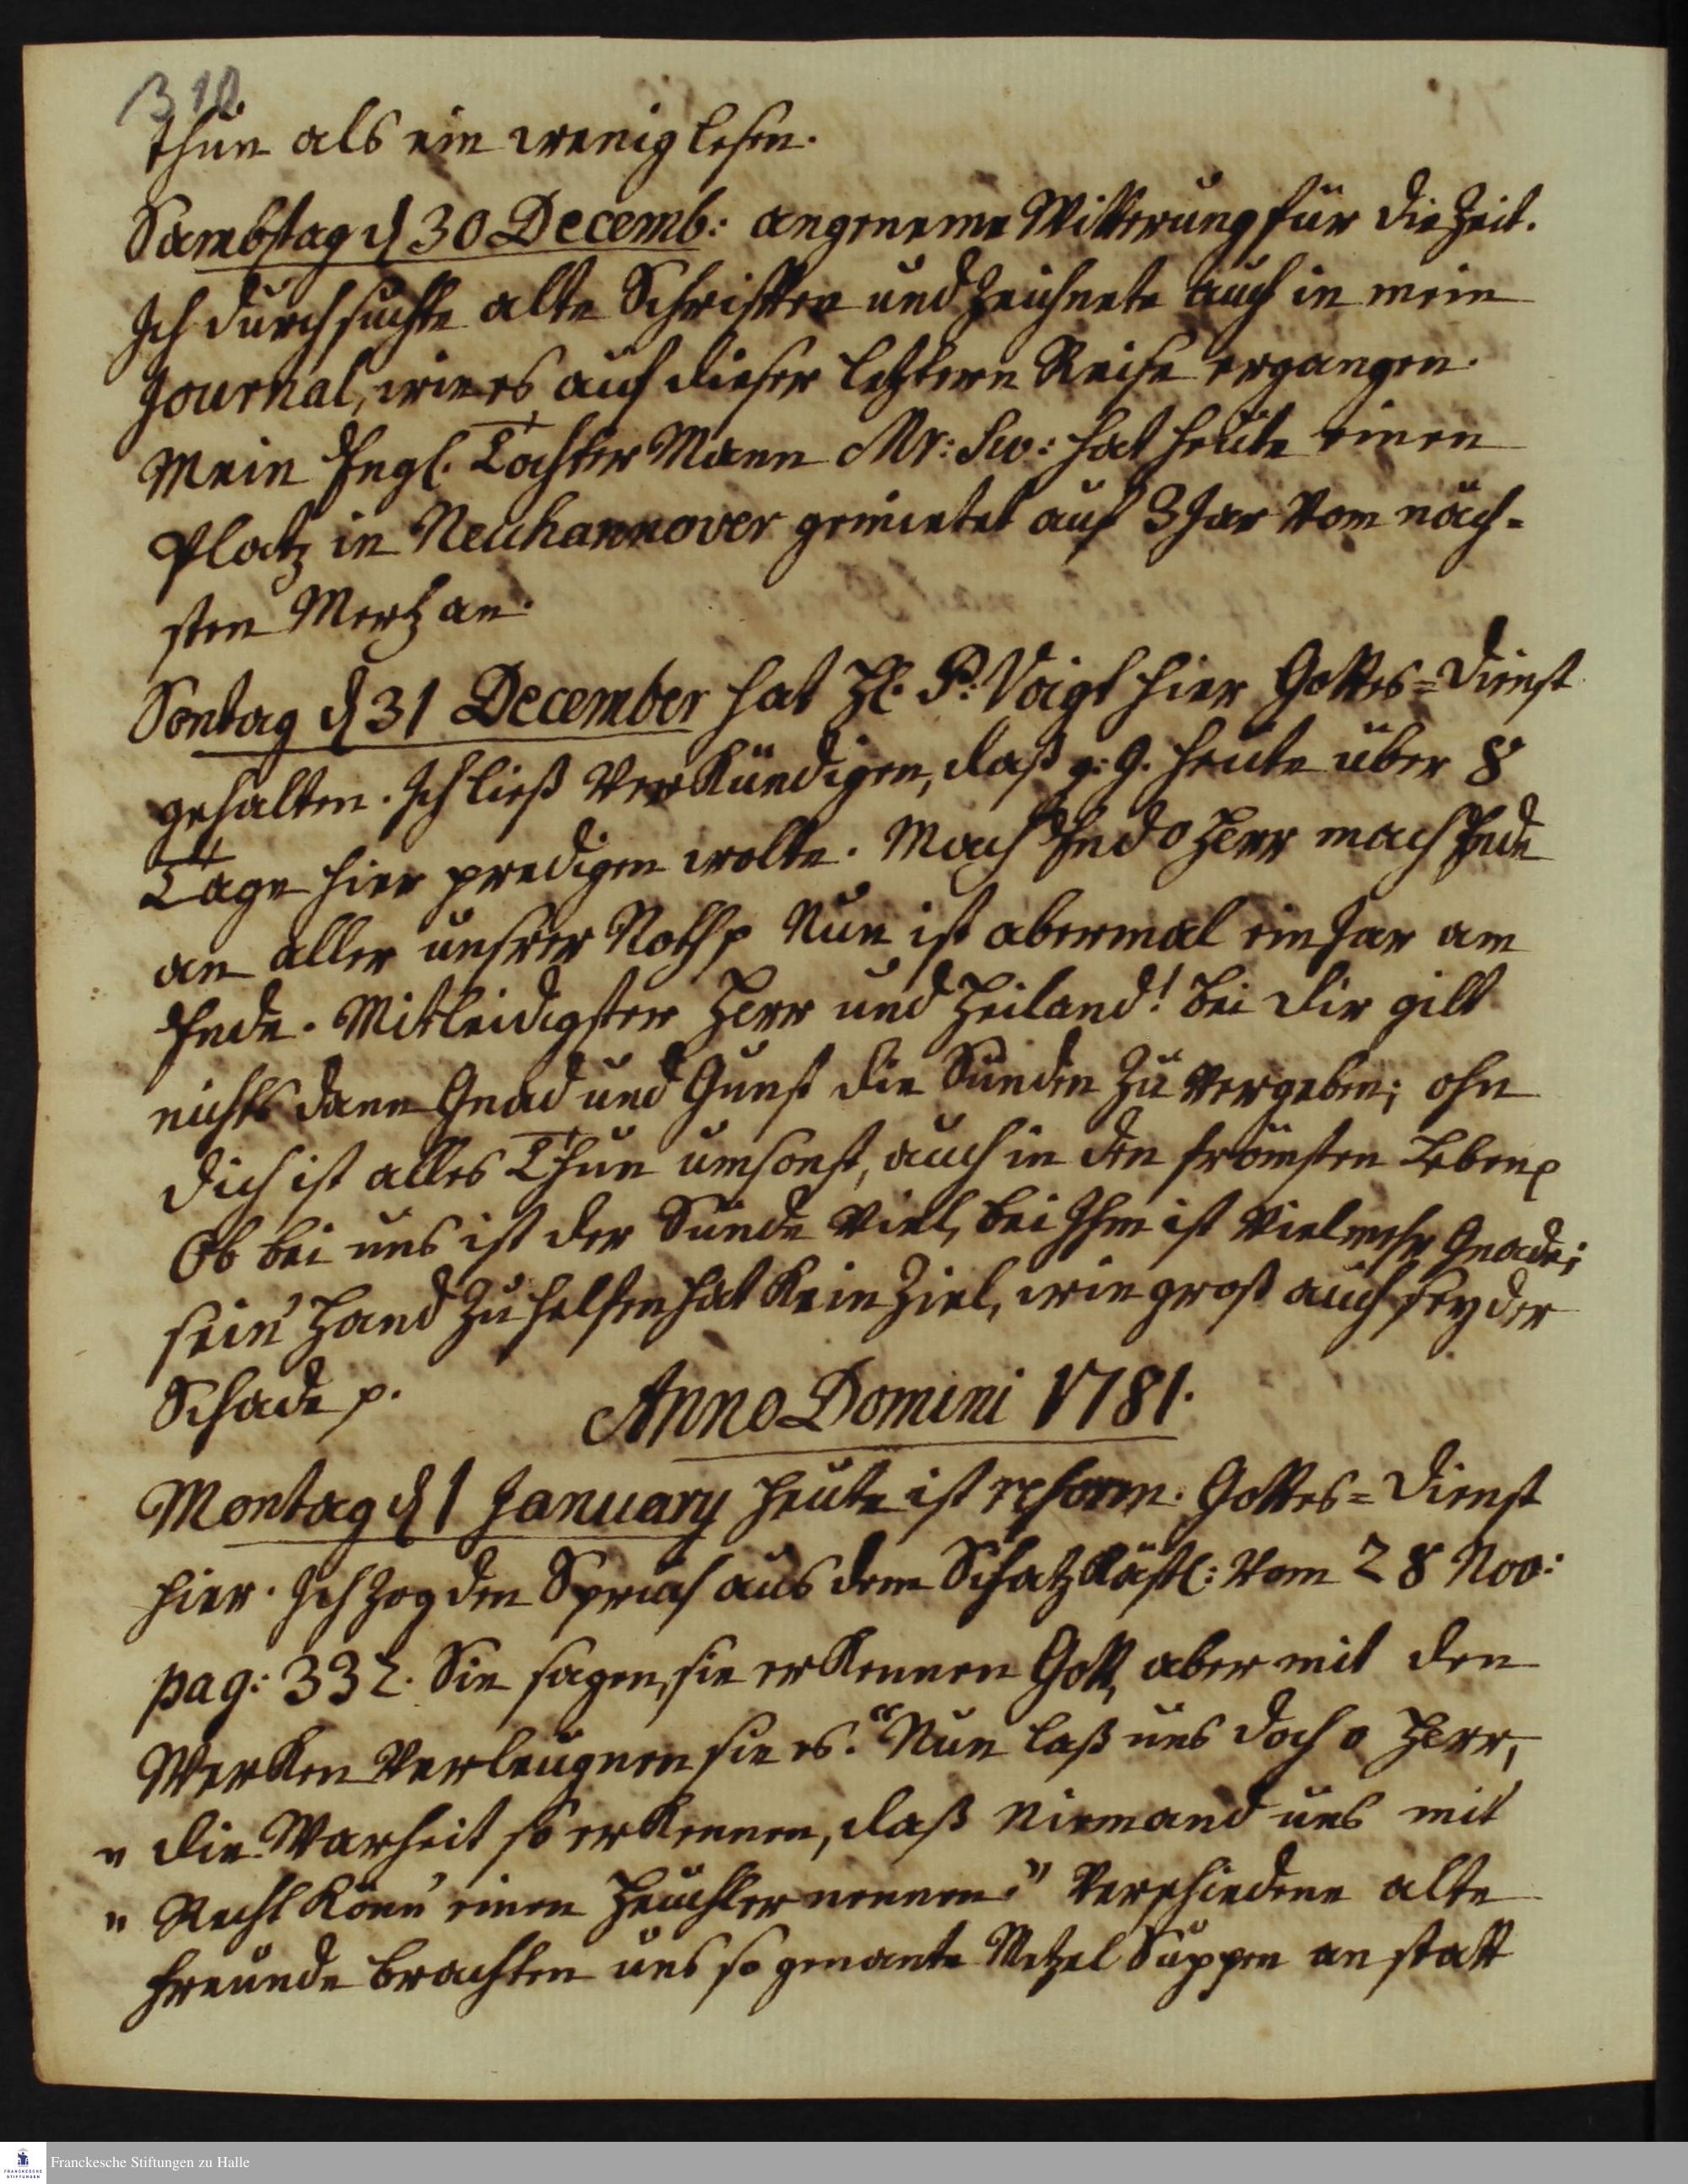 310
thun als ein wenig lesen.
Sambstag d 30 Decemb: angeneme Witterung für die Zeit.
Ich durchsuchte alte Schrifften und Zeichnete auch in mein
Journal, wie es auf dieser letztern Reise ergangen.
Mein Engl. Tochter Mann Mr: Sw: hat heute einen
Platz in Neuhannover gemietet auf 3 Jar vom näch=
sten Mertz an.
Sontag d 31 December hat H. P: Voigt hier Gottes=Dienst
gehalten. Ich ließ verkündigen, daß g: G. heute über 8
Tage hier predigen wolte. Mach End o Herr mach Ende
an aller unsrer Noth p Nun ist abermal ein Jar am
Ende. Mitleidigster Herr und Heiland! bei dir gilt
nichts dann Gnad und Gunst die Sünden zu vergeben; ohn
dich ist alles Thun umsonst, auch in den frömsten Leben p
Ob bei uns ist der Sünde viel, bei Ihm ist vielmehr Gnade;
sein' Hand zu helfen hat kein Ziel, wie groß auch sey der
Schade p.
Anno Domini 1781.
Montag d 1 January heute ist reform. Gottes=Dienst
hier. Ich zog den Spruch aus dem Schatzkästl: vom 28 Nov:
pag: 332. Sie sagen, sie erkennen Gott, aber mit den
Werken verleugnen sie es. "Nun laß uns doch o Herr,
" die Warheit so erkennen, daß niemand uns mit
" Recht könn' einen Heuchler nennen." Verschiedene alte
Freunde brachten uns so genante Metzel Suppen an statt
Franckesche Stiftungen zu Halle
FRANCKESCHE
STIFTUNGEN